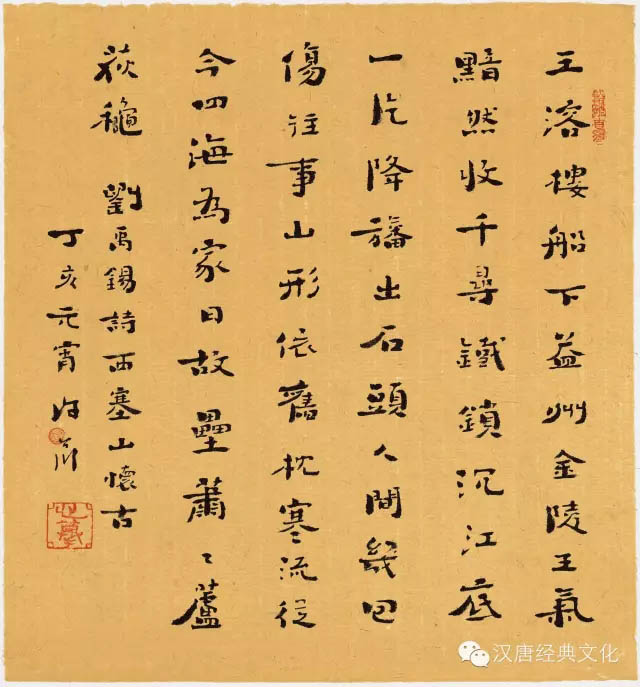 王溶樓船下益州金陵王氣
黯然收千尋鐵鎖沉江底
一片降旛出石頭人間幾回
傷往事山形依舊枕寒流從
今四海為家日故壘蕭〻蘆
荻穐 劉禹錫詩西塞山懷古
丁亥元宵
汉唐经典文化